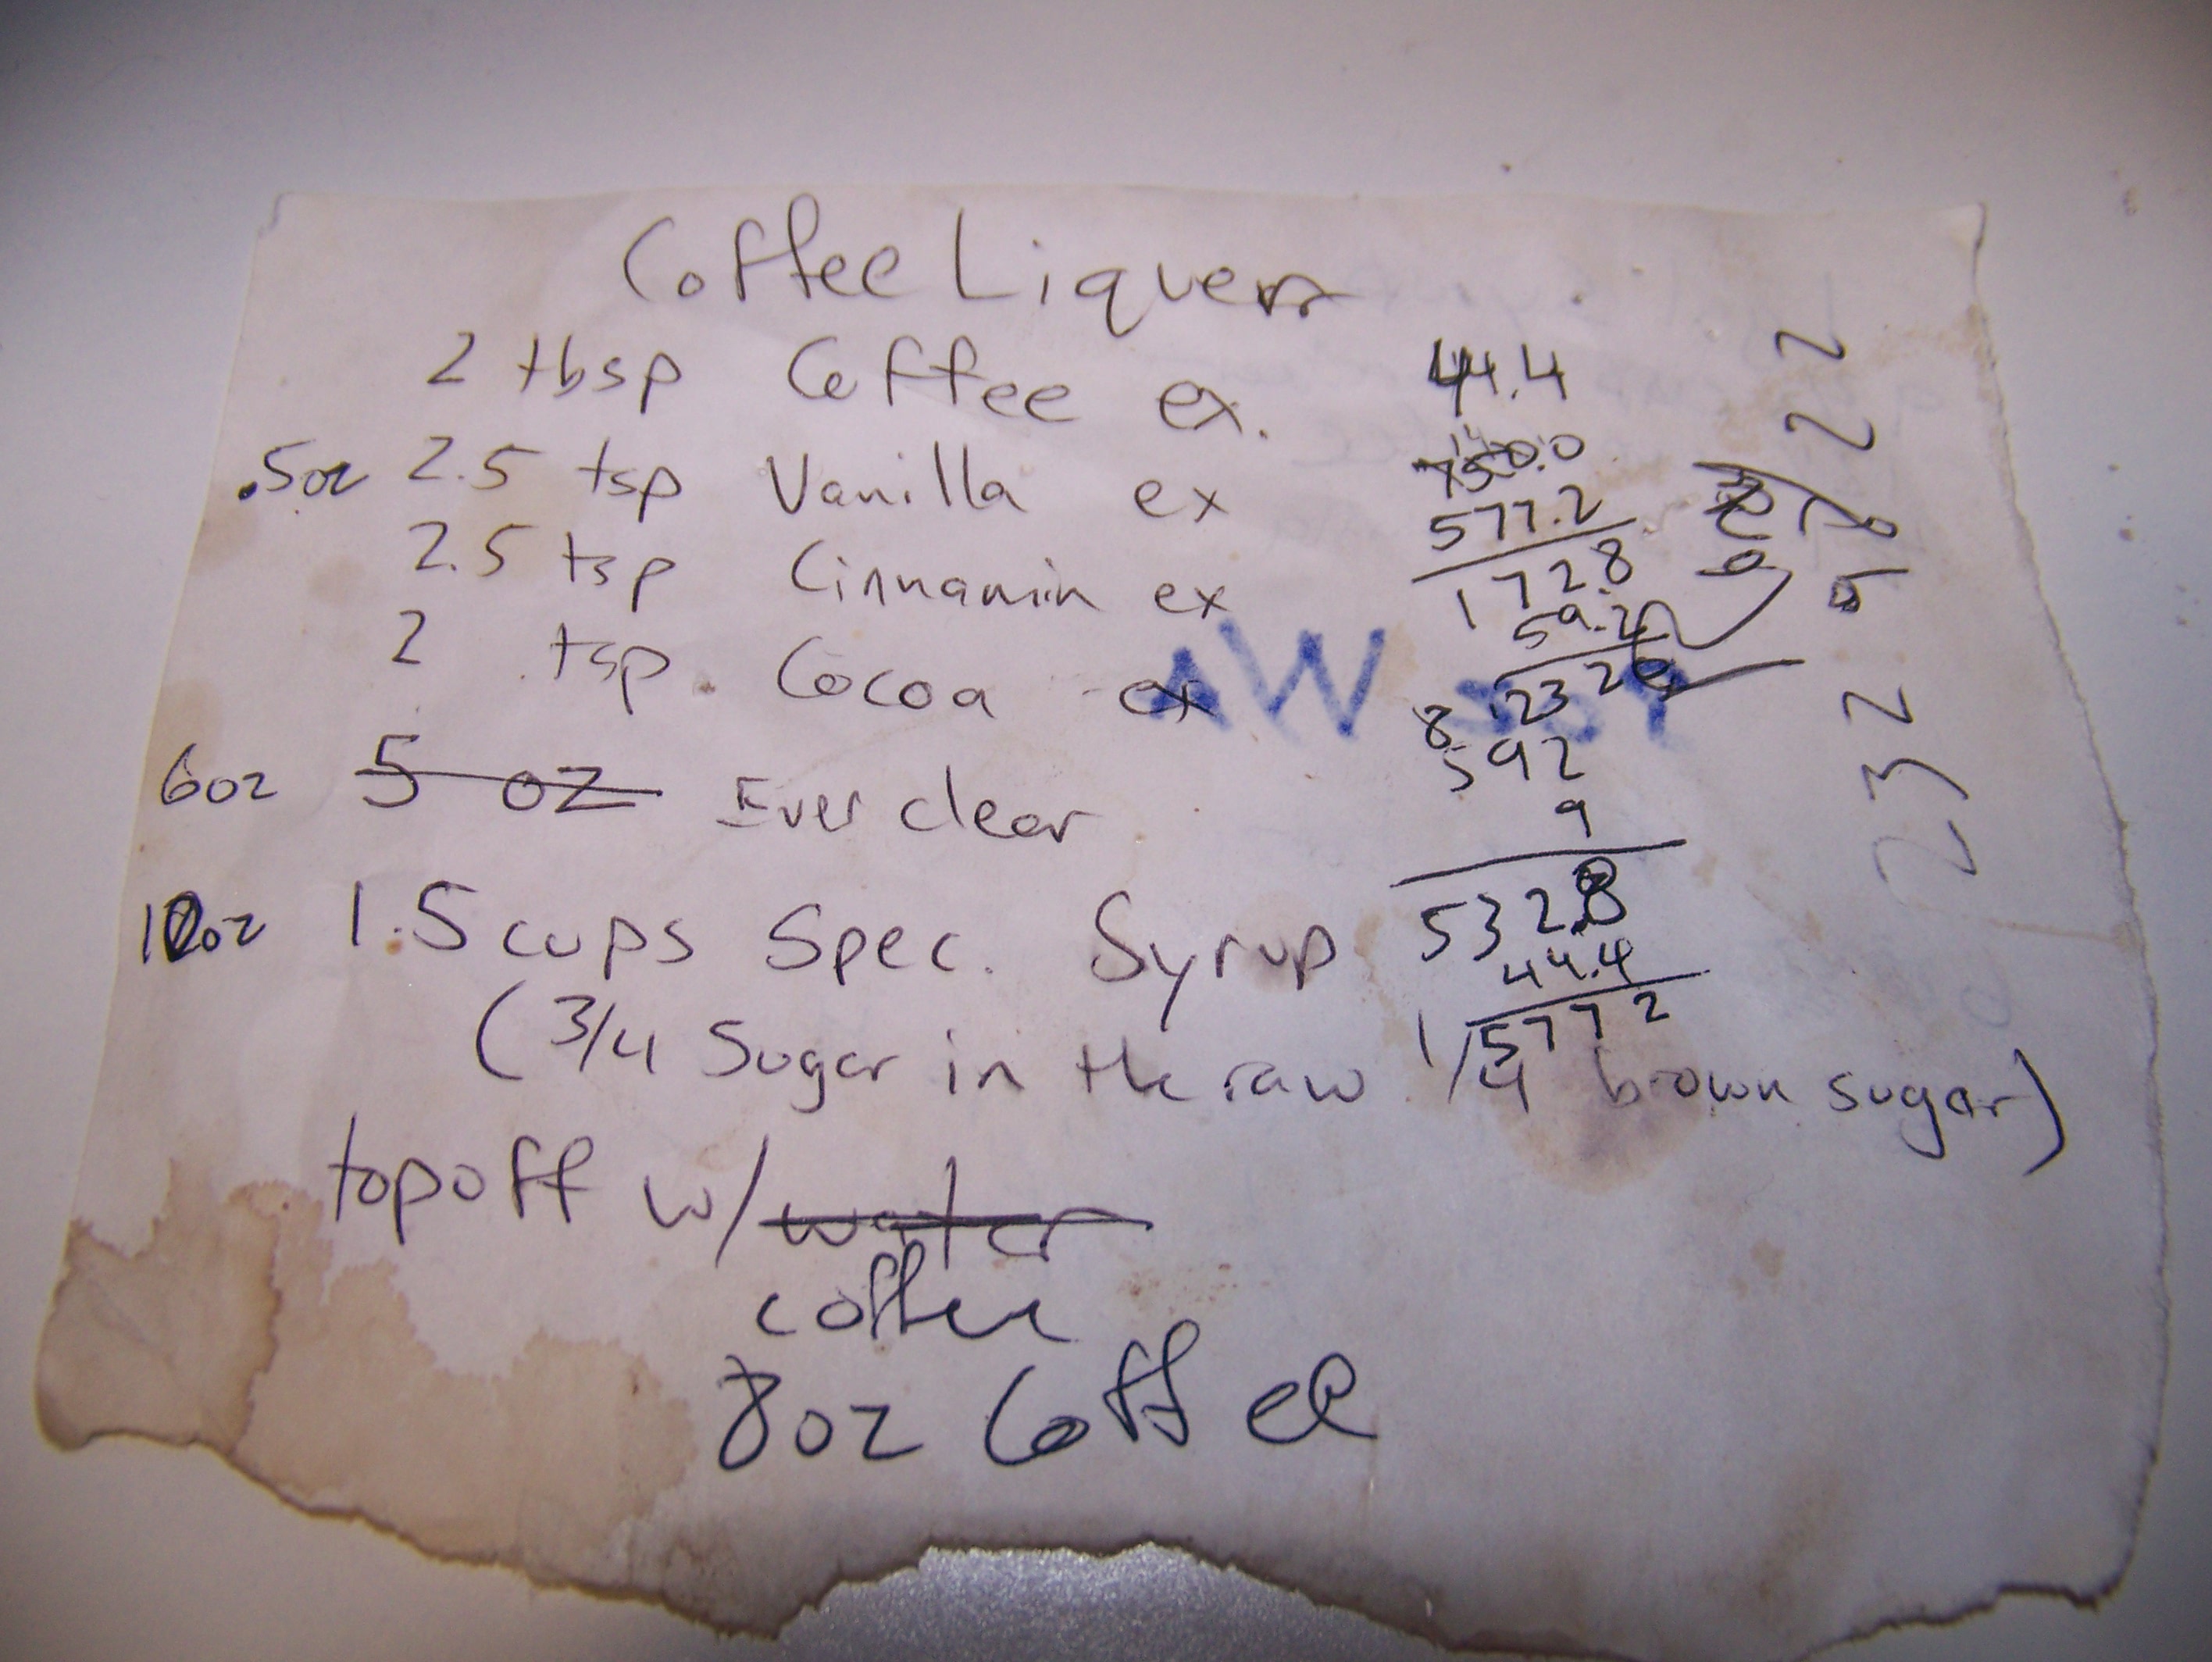 Coffee Liquer
2 tbsp Coffee ex.
.5oz 2.5 tsp Vanilla ex
2.5 tsp Cinnamin ex
2 tsp. Cocoa ex
6oz 5 oz Ever clear
12oz 1.5 cups Spec. Syrup
(3/4 Sugar in the raw 1/4 brown sugar)
top off w/ water
coffee
8oz Coffee
44.4
750.0
577.2
172.8
59.2
232
592
9
532.8
44.4
577 2